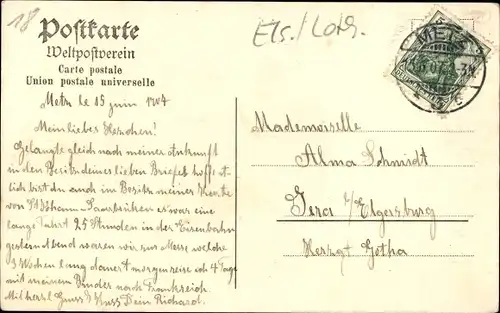 18
Postkarte
Weltpostverein
Carte postale
Union postale universelle
Els./Loth.
METZ
Metz le 15 juin 1904
Mein liebes Herzchen!
Gelangte gleich nach meiner Ankunft
in den Besitz deines lieben Briefes hoffentlich
bist du auch im Besitz meiner Karte
von St Johann-Saarbrücken es war eine
lange Fahrt 25 Stunden in der Eisenbahn
gestern Abend waren wir zur Messe welche
3 Wochen lang dauert morgen reise ich 4 Tage
mit meinem Bruder nach Frankreich.
Mit herzl Gruss & Kuss Dein Richard.
Mademoiselle
Alma Schmidt
Gera b/Elgersburg
Herzgt Gotha